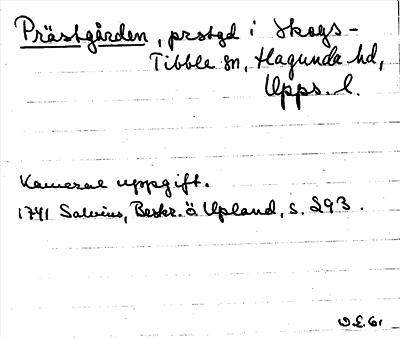 Prästgården, prstgd i Skogs-
Tibble sn, Hagunda hd,
Upps. l.
Kameral uppgift.
1741 Salvius, Beskr. ö Upland, s. 293.
O.E. 61